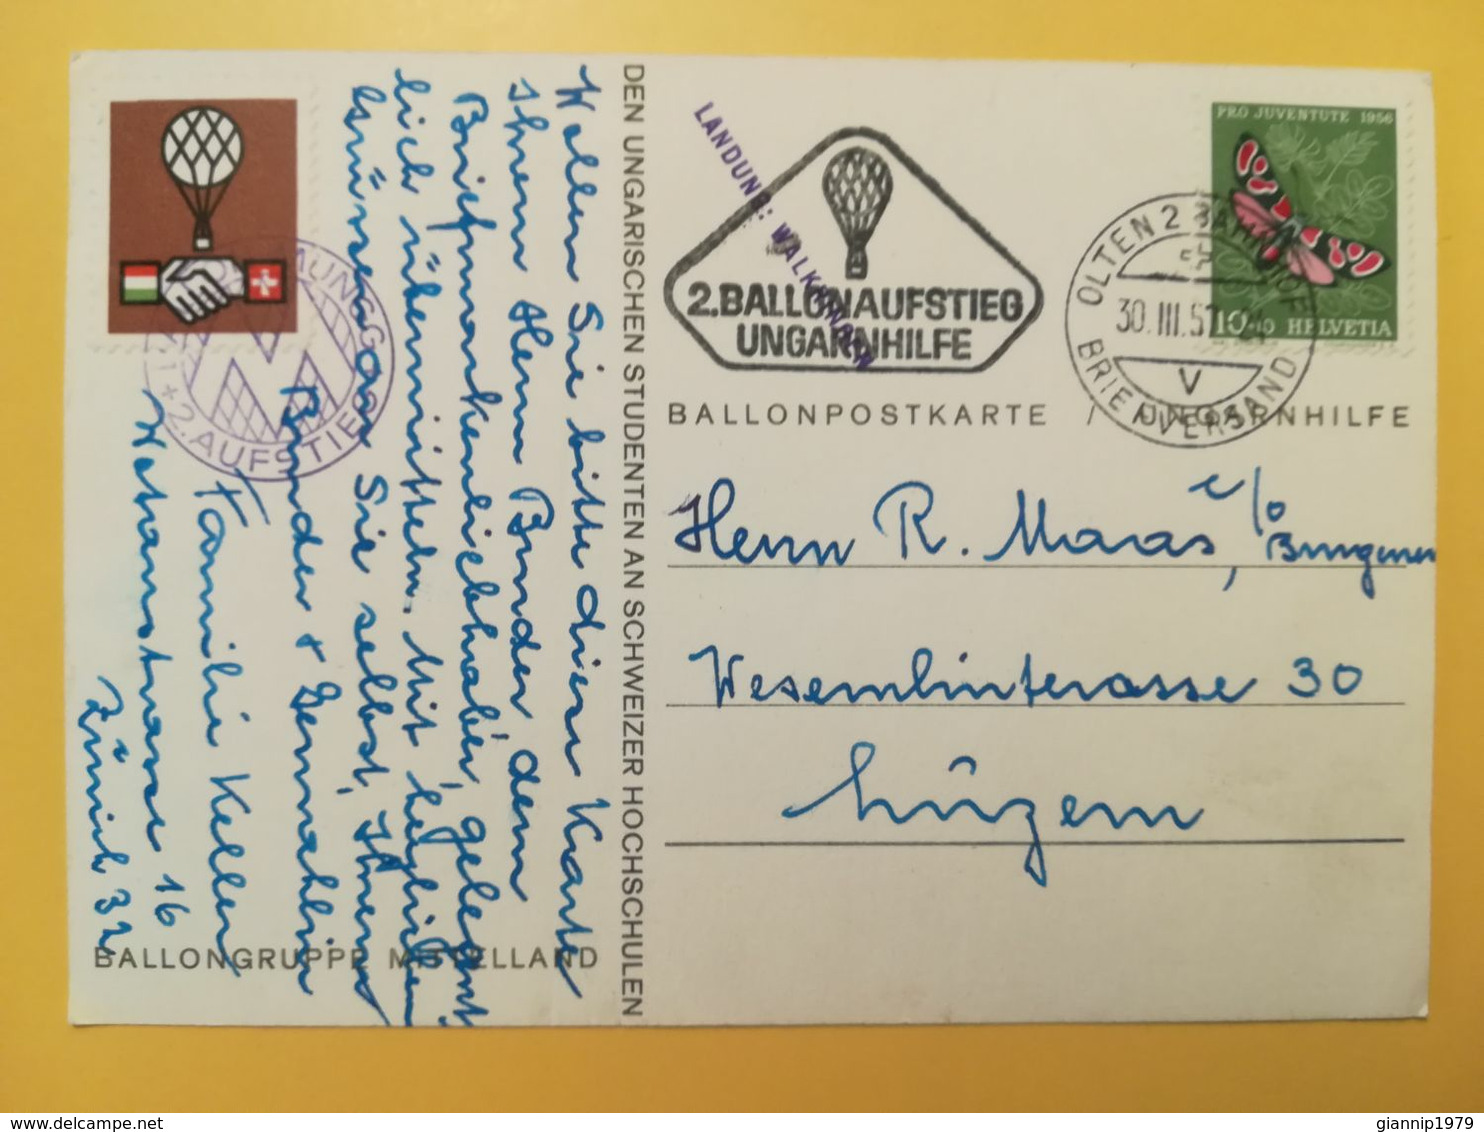 Wollen Sie bitte diese Karte
Ihrem Herrn Bruder, dem
Briefmarkenliebhaber, gelegent
lich übermitteln. Mit herzlichen
Grüssen an Sie selbst, Ihren
Bruder + Gemahlin
Familie Keller
16
Zürich 32
2. AUFSTIEG
BALLONGRUPPE MITTELLAND
DEN UNGARISCHEN STUDENTEN AN SCHWEIZER HOCHSCHULEN
LANDUNG: WALKRINGEN
2. BALLONAUFSTIEG
UNGARNHILFE
OLTEN 2 BAHNHOF
30. III. 57
V
BRIEFVERSAND
PRO JUVENTUTE 1956
10+10 HELVETIA
BALLONPOSTKARTE / UNGARNHILFE
Herrn R. Maas, c/o
Wesemlinterasse 30
Luzern
delcampe.net
giannip1979